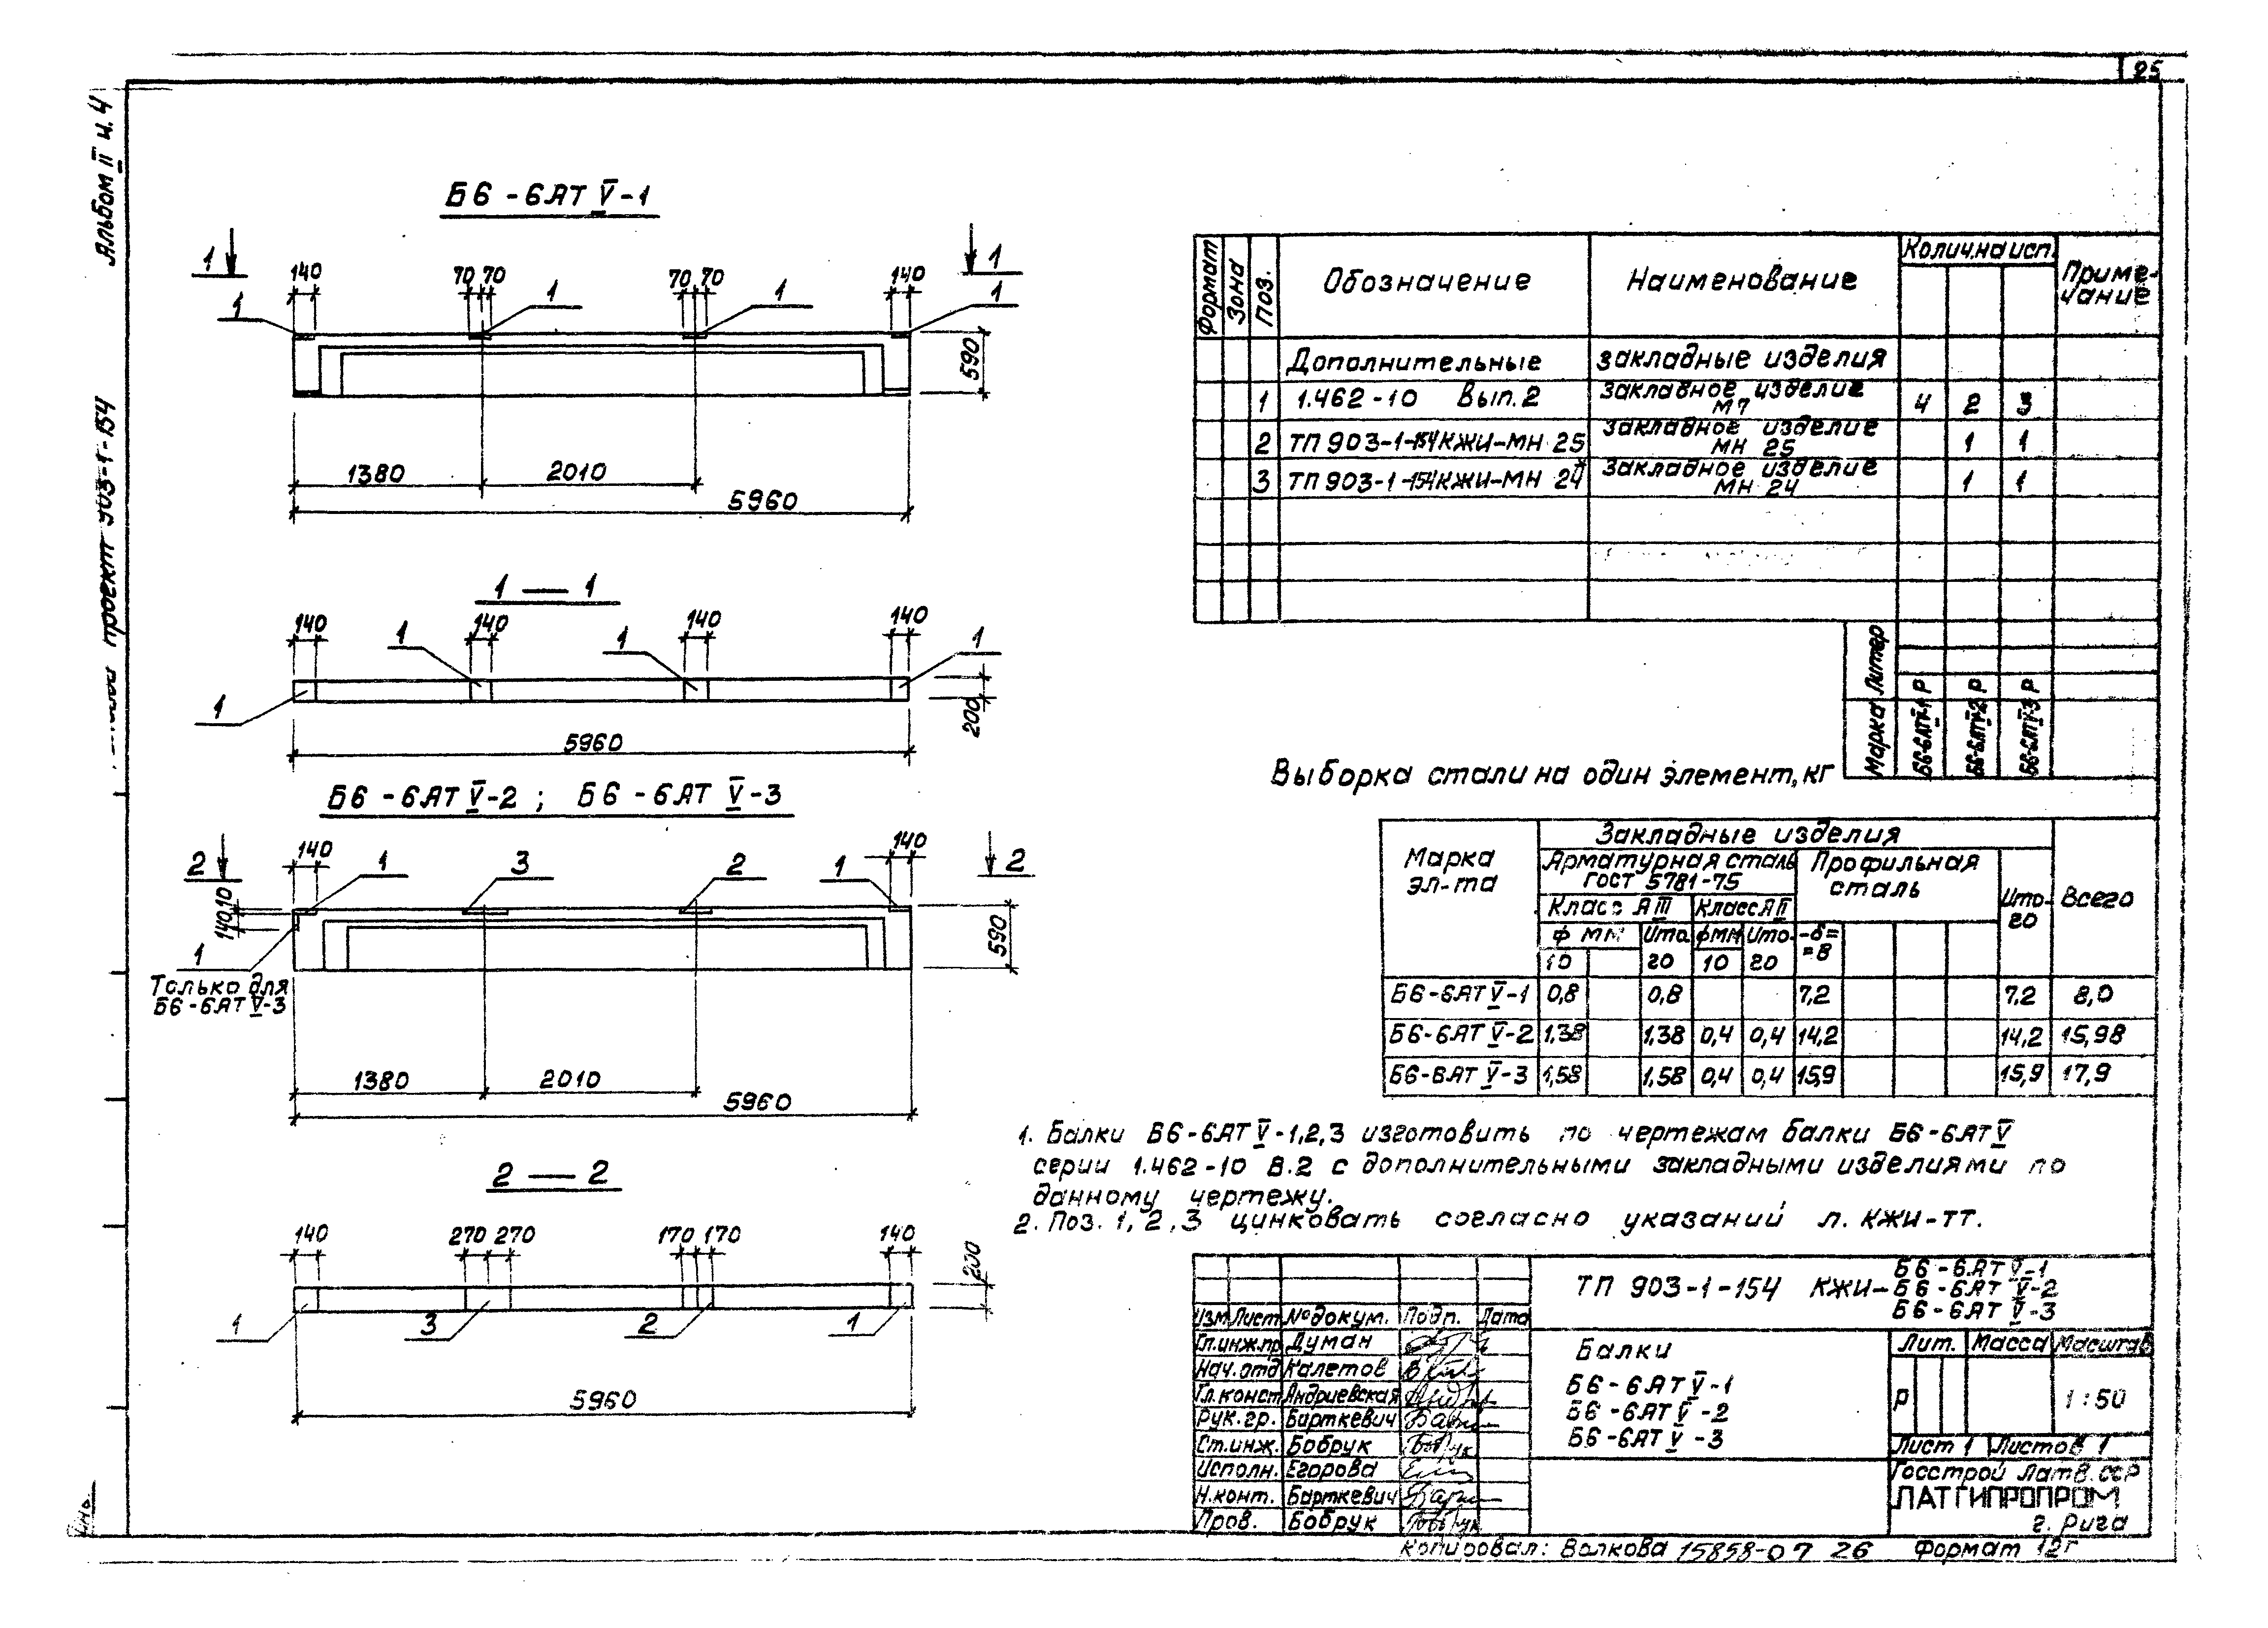 25
Альбом II ч. 4
проект 903-1-154
Б6-6АТ V-1
1 1
140 70 70 70 70 140
1 1 1 1
590
1380 2010
5960
1 — 1
140 140 140 140
1 1 1 1
200
5960
Б6-6АТ V-2 ; Б6-6АТ V-3
2 2
140 140
1 3 2 1
10
140
590
1
Только для
Б6-6АТ V-3
1380 2010
5960
2 — 2
140 270 270 170 170 140
200
1 3 2 1
5960
Формат Зона Поз. Обозначение Наименование Колич. на исп. Приме-
чание
Дополнительные закладные изделия
1 1.462-10 Вып. 2 Закладное изделие
М7 4 2 3
2 ТП 903-1-154 КЖИ-МН 25 Закладное изделие
МН 25 1 1
3 ТП 903-1-154 КЖИ-МН 24 Закладное изделие
МН 24 1 1
Литер Р Р Р
Марка Б6-6АТV-1 Б6-6АТV-2 Б6-6АТV-3
Выборка стали на один элемент, кг
Марка
эл-та
Закладные изделия
Арматурная сталь
ГОСТ 5781-75
Профильная
сталь
Ито-
го
Всего
Класс А III Класс А II
ф мм Ито ф мм Ито- -δ=
10 го 10 го =8
Б6-6АТ V-1 0,8 0,8 7,2 7,2 8,0
Б6-6АТ V-2 1,38 1,38 0,4 0,4 14,2 14,2 15,98
Б6-6АТ V-3 1,58 1,58 0,4 0,4 15,9 15,9 17,9
1. Балки Б6-6АТ V-1,2,3 изготовить по чертежам балки Б6-6АТ V
серии 1.462-10 В.2 с дополнительными закладными изделиями по
данному чертежу.
2. Поз. 1, 2, 3 цинковать согласно указаний л. КЖИ-ТТ.
ТП 903-1-154 КЖИ- Б6-6АТ V-1
Б6-6АТ V-2
Б6-6АТ V-3
Изм Лист № докум. Подп. Дата
Гл.инж.пр Думан
Нач.отд Калетов
Гл.конст Андриевская
Рук.гр. Барткевич
Ст.инж. Бобрук
Исполн. Егорова
Н.конт. Барткевич
Пров. Бобрук
Балки
Б6-6АТ V-1
Б6-6АТ V-2
Б6-6АТ V-3
Лит. Масса Масштаб
Р 1:50
Лист 1 Листов 1
Госстрой Латв. ССР
ЛАТГИПРОПРОМ
г. Рига
Копировал: Волкова 15858-07 26 Формат 12г